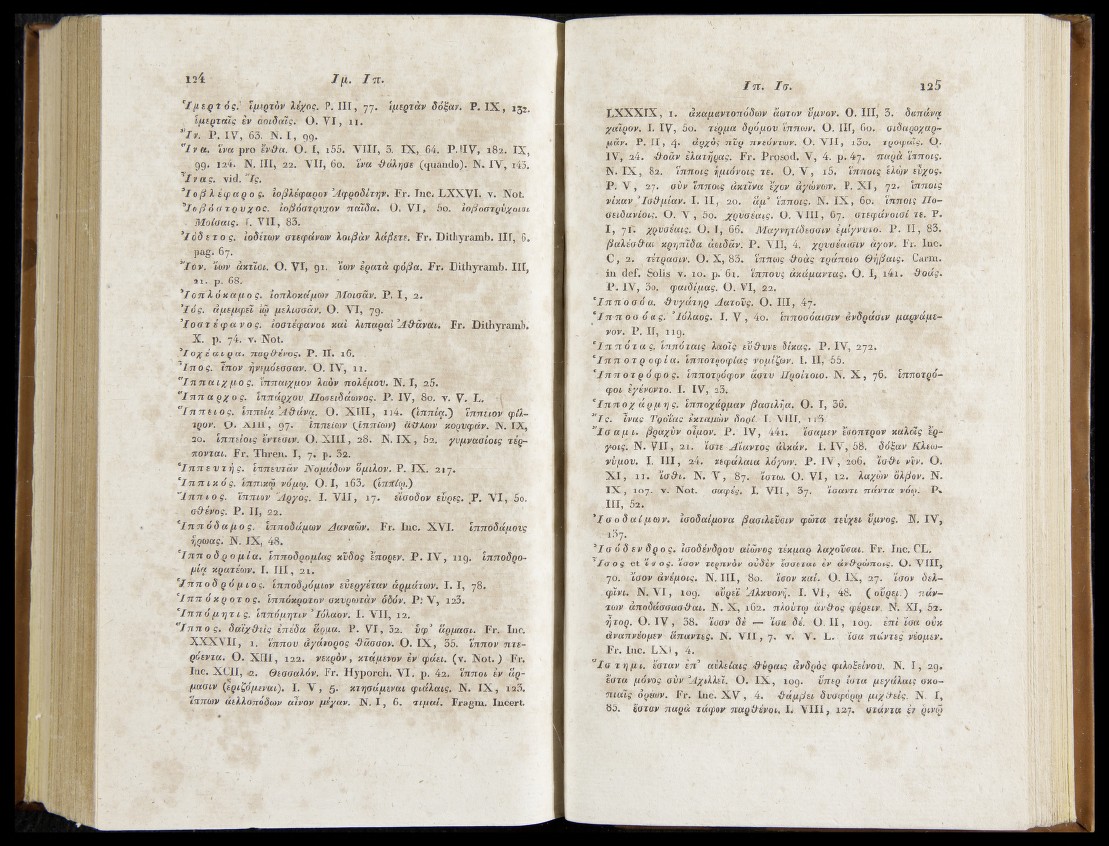 124 Ιμ. Ιπ.
Ἱμερτός. ἱμερτὸν λέχος. P. III, 77. ἱμερτὰν δόξαν. P. IX, 132.
ἱμερταῖς ἐν ἀοιδαῖς. O. VI, 11.
Ἴν. P. IV, 63. N. I, 99.
Ἵνα. ἵνα pro ἔνθα. O. I, 155. VIII, 3. IX, 64. P. IV, 182. IX,
99. 124. N. III, 22. VII, 60. ἵνα θάλησε (quando). N. IV, 143.
Ἶνας. vid. Ἴς.
Ἰοβλέφαρος. ἰοβλέφαρον Ἀφροδίτην. Fr. Inc. LXXVI. v. Not.
Ἰοβόστρυχος. ἰοβόστρυχον παῖδα. O. VI, 50. ἰοβοστρύχοισι
Μοίσαις. I. VII, 83.
Ἰόδετος. ἰοδέτων στεφάνων λοιβὰν λάβετε. Fr. Dithyramb. III, 6.
pag. 67.
Ἴον. ἴων ἀκτῖσι. O. VI, 91. ἴων ἐρατὰ φόβα. Fr. Dithyramb. III,
21. p. 68.
Ἰοπλόκαμος. ἰοπλοκάμων Μοισᾶν. P. I, 2.
Ἰός. ἀμεμφεῖ ἰῷ μελισσᾶν. O. VI, 79.
Ἰοστέφανος. ἰοστέφανοι καὶ λιπαραὶ Ἀθᾶναι. Fr. Dithyramb.
X. p. 74. v. Not.
Ἰοχέαιρα. παρθένος. P. II. 16.
Ἶπος. ἶπον ἠνιμόεσσαν. O. IV, 11.
Ἱππαιχμος. ἱππαιχμον λαὸν πολέμου. N. I, 25.
Ἵππαρχος. ἱππάρχου Ποσειδάωνος. P. IV, 80. v. V. L.
Ἵππειος. ἱππεία Ἀθάνα. O. XIII, 114. (ἱππίᾳ.) ἵππειον φίλ-
τρον. O. XIII, 97. ἱππείων (ἱππίων) ἀέθλων κορυφάν. N. IX,
20. ἱππείοις ἔντεσιν. O. XIII, 28. N. IX, 52. γυμνασίοις τέρ-
πονται. Fr. Thren. I, 7. p. 32.
Ἱππευτής. ἱππευτᾶν Νομάδων ὅμιλον. P. IX. 217.
Ἱππικός. ἱππικῷ νόμῳ. O. I, 163. (ἱππίῳ.)
Ἵππιος. ἵππιον Ἄργος. I. VII, 17. εἴσοδον εὗρες. P. VI, 50.
σθένος. P. II, 22.
Ἱππόδαμος. ἱπποδάμων Δαναῶν. Fr. Inc. XVI. ἱπποδάμοις
ἥρωας. N. IX, 48.
Ἱπποδρομία. ἱπποδρομίας κῦδος ἔπορεν. P. IV, 119. ἱπποδρο-
μίᾳ κρατέων. I. III, 21.
Ἱπποδρόμιος. ἱπποδρόμιον εὐεργέταν ἁρμάτων. I. I, 78.
Ἱππόκροτος. ἱππόκροτον σκυρωτὰν ὁδόν. P. V, 123.
Ἱππόμητις. ἱππόμητιν Ἰόλαον. I. VII, 12.
Ἵππος. δαϊχθεὶς ἐπέδα ἅρμα. P. VI, 32. ὑφ᾽ ἅρμασι. Fr. Inc.
XXXVII, 1. ἵππου ἀγάνορος θάσσον. O. IX, 35. ἵππον πτε-
ρόεντα. O. XIII, 122. νεκρὸν, κτάμενον ἐν φάει. (v. Not.) Fr.
Inc. XCII, 2. Θεσσαλόν. Fr. Hyporch. VI. p. 42. ἵπποι ἐν ἅρ-
μασιν (ἐριζόμεναι). I. V, 5. κτησάμεναι φιάλαις. N. IX, 123.
ἵππων ἀελλοπόδων αἶνον μέγαν. N. I, 6. τιμαί. Fragm. Incert.
Ιπ. Ισ. 125
LXXXIX, 1. ἀκαμαντοπόδων ἄωτον ὕμνον. O. III, 3. δαπάνᾳ
χαῖρον. I. IV, 50. τέρμα δρόμου ἵππων. O. III, 60. σιδαροχαρ-
μᾶν. P. II, 4. ἀρχὸς πῦρ πνεόντων. O. VII, 130. τροφαῖς. O.
IV, 24. θοᾶν ἐλατῆρας. Fr. Prosod. V, 4. p. 47. παρὰ ἵπποις.
N. IX, 82. ἵπποις ἡμιόνοις τε. O. V, 15. ἵπποις ἑλὼν εὖχος.
P. V, 27. σὺν ἵπποις ἀκτῖνα ἔχον ἀγώνων. P. XI, 72. ἵπποις
νίκαν Ἰσθμίαν. I. II, 20. ἅμ᾽ ἵπποις. N. IX, 60. ἵπποις Πο-
σειδανίοις. O. V, 50. χρυσέαις. O. VIII, 67. στεφάνοισί τε. P.
I, 71. χρυσέαις. O. I, 66. Μαγνητίδεσσιν ἐμίγνυτο. P. II, 83.
βαλέσθαι κρηπῖδα ἀοιδᾶν. P. VII, 4. χρυσέαισιν ἄγον. Fr. Inc.
C, 2. τέτρασιν. O. X, 83. ἵππως θοὰς τράποιο Θήβαις. Carm.
in def. Solis v. 10. p. 61. ἵππους ἀκάμαντας. O. I, 141. θοάς.
P. IV, 30. φαιδίμας. O. VI, 22.
Ἱπποσόα. θυγάτηρ Λατοῦς. O. III, 47.
Ἱπποσόας. Ἰόλαος. I. V, 40. ἱπποσόαισιν ἄνδράσιν μαρνάμε-
νον. P. II, 119.
Ἱππότας. ἱππόταις λαοῖς εὔθυνε δίκας. P. IV, 272.
Ἱπποτροφία. ἱπποτροφίας νομίζων. I. II, 55.
Ἱπποτρόφος. ἱπποτρόφον ἄστυ Προίτοιο. N. X, 76. ἱπποτρό-
φοι ἐγένοντο. I. IV, 23.
Ἱπποχάρμης. ἱπποχάρμαν βασιλῆα. O. I, 36.
Ἴς. ἶνας Τροΐας ἐκταμὼν δορί. I. VIII, 113
Ἴσαμι. βραχὺν οἶμον. P. IV, 441. ἴσαμεν ἔσοπτρον καλαῖς ἔρ-
γοις. N. VII, 21. ἴστε Αἴαντος ἀλκάν. I. IV, 58. δόξαν Κλεω-
νύμου. I. III, 24. κεφάλαια λόγων. P. IV, 206. ἴσθι νῦν. O.
XI, 11. ἴσθι. N. V, 87. ἴστω. O. VI, 12. λαχὼν ὄλβον. N.
IX, 107. v. Not. σαφές. I. VII, 37. ἴσαντι πάντα νόῳ. P.
III, 52.
Ἰσοδαίμων. ἰσοδαίμονα βασιλεῦσιν φῶτα τεύχει ὕμνος. N. IV,
137.
Ἰσόδενδρος. ἰσοδένδρου αἰῶνος τέκμαρ λαχοῦσαι. Fr. Inc. CL.
Ἴσος et ἶσος. ἴσον τερπνὸν οὐδὲν ἔσσεται ἐν ἀνθρώποις. O. VIII,
70. ἴσον ἀνέμοις. N. III, 80. ἴσον καί. O. IX, 27. ἴσον δελ-
φῖνι. N. VI, 109. οὔρεϊ Ἀλκυονῆ. I. VI, 48. (οὔρεϊ.) πάν-
των ἀποδάσσασθαι. N. X, 162. πλούτῳ ἄνθος φέρειν. N. XI, 52.
ἦτορ. O. IV, 38. ἴσον δὲ — ἴσα δέ. O. II, 109. ἐπὶ ἴσα οὐκ
ἀναπνέομεν ἅπαντες. N. VII, 7. v. V. L. ἴσα πώντες νέομεν.
Fr. Inc. LXI, 4.
Ἵστημι. ἔσταν ἐπ᾽ αὐλείαις θύραις ἀνδρὸς φιλοξείνου. N. I, 29.
ἔστα μόνος σὺν Ἀχιλλεῖ. O. IX, 109. ὑπὲρ ἵστα μεγάλαις σκο-
πιαῖς ὀρέων. Fr. Inc. XV, 4. θάμβει δυσφόρῳ μιχθείς. N. I,
85. ἔστον παρὰ τάφον παρθένοι. I. VIII, 127. στάντα ἐπ ῥινῷ